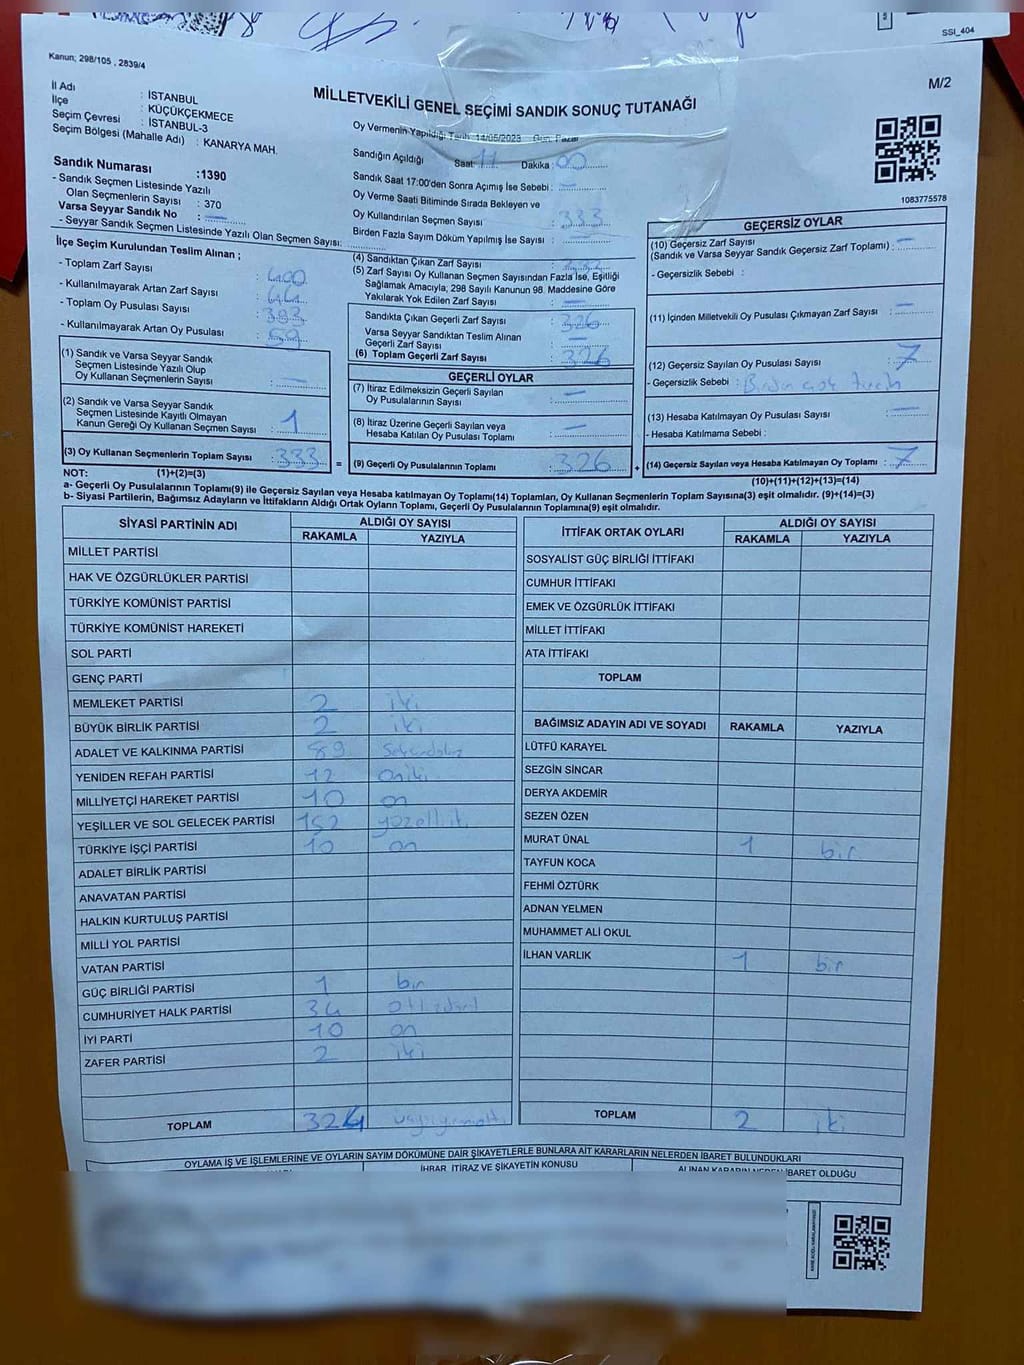 SSI_404
Kanun; 298/105 , 2839/4
M/2
MİLLETVEKİLİ GENEL SEÇİMİ SANDIK SONUÇ TUTANAĞI
İl Adı : İSTANBUL
İlçe : KÜÇÜKÇEKMECE
Seçim Çevresi : İSTANBUL-3
Seçim Bölgesi (Mahalle Adı) : KANARYA MAH.
Sandık Numarası :1390
- Sandık Seçmen Listesinde Yazılı
Olan Seçmenlerin Sayısı : 370
Varsa Seyyar Sandık No : —
- Seyyar Sandık Seçmen Listesinde Yazılı Olan Seçmen Sayısı:
Oy Vermenin Yapıldığı Tarih 14/05/2023 Gün: Pazar
Sandığın Açıldığı Saat: 17 Dakika: 00
Sandık Saat 17:00'den Sonra Açımış İse Sebebi : —
Oy Verme Saati Bitiminde Sırada Bekleyen ve
Oy Kullandırılan Seçmen Sayısı : 333
Birden Fazla Sayım Döküm Yapılmış İse Sayısı : —
1083775578
İlçe Seçim Kurulundan Teslim Alınan ;
- Toplam Zarf Sayısı : 400
- Kullanılmayarak Artan Zarf Sayısı :
- Toplam Oy Pusulası Sayısı :
- Kullanılmayarak Artan Oy Pusulası :
(1) Sandık ve Varsa Seyyar Sandık
Seçmen Listesinde Yazılı Olup
Oy Kullanan Seçmenlerin Sayısı : —
(2) Sandık ve Varsa Seyyar Sandık
Seçmen Listesinde Kayıtlı Olmayan
Kanun Gereği Oy Kullanan Seçmen Sayısı : 1
(3) Oy Kullanan Seçmenlerin Toplam Sayısı : 333 =
(4) Sandıktan Çıkan Zarf Sayısı :
(5) Zarf Sayısı Oy Kullanan Seçmen Sayısından Fazla İse, Eşitliği
Sağlamak Amacıyla; 298 Sayılı Kanunun 98. Maddesine Göre
Yakılarak Yok Edilen Zarf Sayısı : —
Sandıkta Çıkan Geçerli Zarf Sayısı : 326
Varsa Seyyar Sandıktan Teslim Alınan
Geçerli Zarf Sayısı : —
(6) Toplam Geçerli Zarf Sayısı : 326
GEÇERLİ OYLAR
(7) İtiraz Edilmeksizin Geçerli Sayılan
Oy Pusulalarının Sayısı : —
(8) İtiraz Üzerine Geçerli Sayılan veya
Hesaba Katılan Oy Pusulası Toplamı : —
(9) Geçerli Oy Pusulalarının Toplamı : 326 +
GEÇERSİZ OYLAR
(10) Geçersiz Zarf Sayısı
(Sandık ve Varsa Seyyar Sandık Geçersiz Zarf Toplamı) : —
- Geçersizlik Sebebi :
(11) İçinden Milletvekili Oy Pusulası Çıkmayan Zarf Sayısı : —
(12) Geçersiz Sayılan Oy Pusulası Sayısı : 7
- Geçersizlik Sebebi : Birden çok tercih
(13) Hesaba Katılmayan Oy Pusulası Sayısı : —
- Hesaba Katılmama Sebebi :
(14) Geçersiz Sayılan veya Hesaba Katılmayan Oy Toplamı : 7
NOT: (1)+(2)=(3) (10)+(11)+(12)+(13)=(14)
a- Geçerli Oy Pusulalarının Toplamı(9) ile Geçersiz Sayılan veya Hesaba katılmayan Oy Toplamı(14) Toplamları, Oy Kullanan Seçmenlerin Toplam Sayısına(3) eşit olmalıdır. (9)+(14)=(3)
b- Siyasi Partilerin, Bağımsız Adayların ve İttifakların Aldığı Ortak Oyların Toplamı, Geçerli Oy Pusulalarının Toplamına(9) eşit olmalıdır.
SİYASİ PARTİNİN ADI ALDIĞI OY SAYISI
RAKAMLA YAZIYLA
MİLLET PARTİSİ
HAK VE ÖZGÜRLÜKLER PARTİSİ
TÜRKİYE KOMÜNİST PARTİSİ
TÜRKİYE KOMÜNİST HAREKETİ
SOL PARTİ
GENÇ PARTİ
MEMLEKET PARTİSİ 2 iki
BÜYÜK BİRLİK PARTİSİ 2 iki
ADALET VE KALKINMA PARTİSİ 89 Seksendokuz
YENİDEN REFAH PARTİSİ 12 oniki
MİLLİYETÇİ HAREKET PARTİSİ 10 on
YEŞİLLER VE SOL GELECEK PARTİSİ 152 yüzelliiki
TÜRKİYE İŞÇİ PARTİSİ 10 on
ADALET BİRLİK PARTİSİ
ANAVATAN PARTİSİ
HALKIN KURTULUŞ PARTİSİ
MİLLİ YOL PARTİSİ
VATAN PARTİSİ
GÜÇ BİRLİĞİ PARTİSİ 1 bir
CUMHURİYET HALK PARTİSİ 34 otuzdört
İYİ PARTİ 10 on
ZAFER PARTİSİ 2 iki
TOPLAM 324
İTTİFAK ORTAK OYLARI ALDIĞI OY SAYISI
RAKAMLA YAZIYLA
SOSYALİST GÜÇ BİRLİĞİ İTTİFAKI
CUMHUR İTTİFAKI
EMEK VE ÖZGÜRLÜK İTTİFAKI
MİLLET İTTİFAKI
ATA İTTİFAKI
TOPLAM
BAĞIMSIZ ADAYIN ADI VE SOYADI RAKAMLA YAZIYLA
LÜTFÜ KARAYEL
SEZGİN SİNCAR
DERYA AKDEMİR
SEZEN ÖZEN
MURAT ÜNAL 1 bir
TAYFUN KOCA
FEHMİ ÖZTÜRK
ADNAN YELMEN
MUHAMMET ALİ OKUL
İLHAN VARLIK 1 bir
TOPLAM 2 iki
OYLAMA İŞ VE İŞLEMLERİNE VE OYLARIN SAYIM DÖKÜMÜNE DAİR ŞİKAYETLERLE BUNLARA AİT KARARLARIN NELERDEN İBARET BULUNDUKLARI
İHBAR, İTİRAZ VE ŞİKAYETİN KONUSU
ALINAN KARARIN NEDEN İBARET OLDUĞU